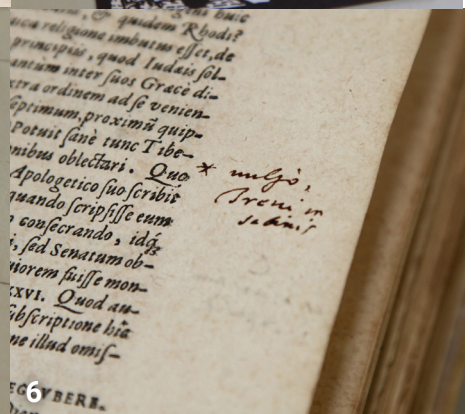 , & quidam Rhodi?
uica religione imbutus esset, de
principiis, quod Iudæis sol-
antùm inter suos Græcè di-
xtra ordinem ad se venien-
septimum, proximũ quip-
Potuit sanè tunc Tibe-
nibus oblectari. Quo
Apologetico suo scribit
quando scripsisse eum
consecrando, idq́;
, sed Senatum ob-
iorem fuisse mon-
XXVI. Quod au-
ubscriptione hîc
ne illud omis-
VBERE.
* in
6